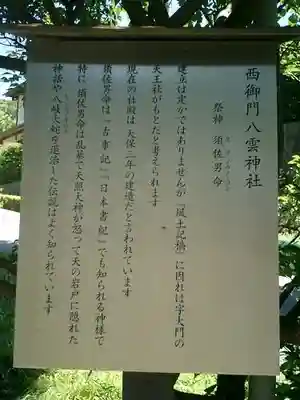 西御門八雲神社
祭神 須佐男命
建立は定かではありませんが『風土記稿』に因れば字大門の
天王社がもとだと考えられます
現在の社殿は天保三年の建造だと言われています
須佐男命は『古事記』『日本書紀』でも知られる神様で
特に須佐男命は乱暴で天照大神が怒って天の岩戸に隠れた
神話や八岐大蛇を退治した伝説はよく知られています